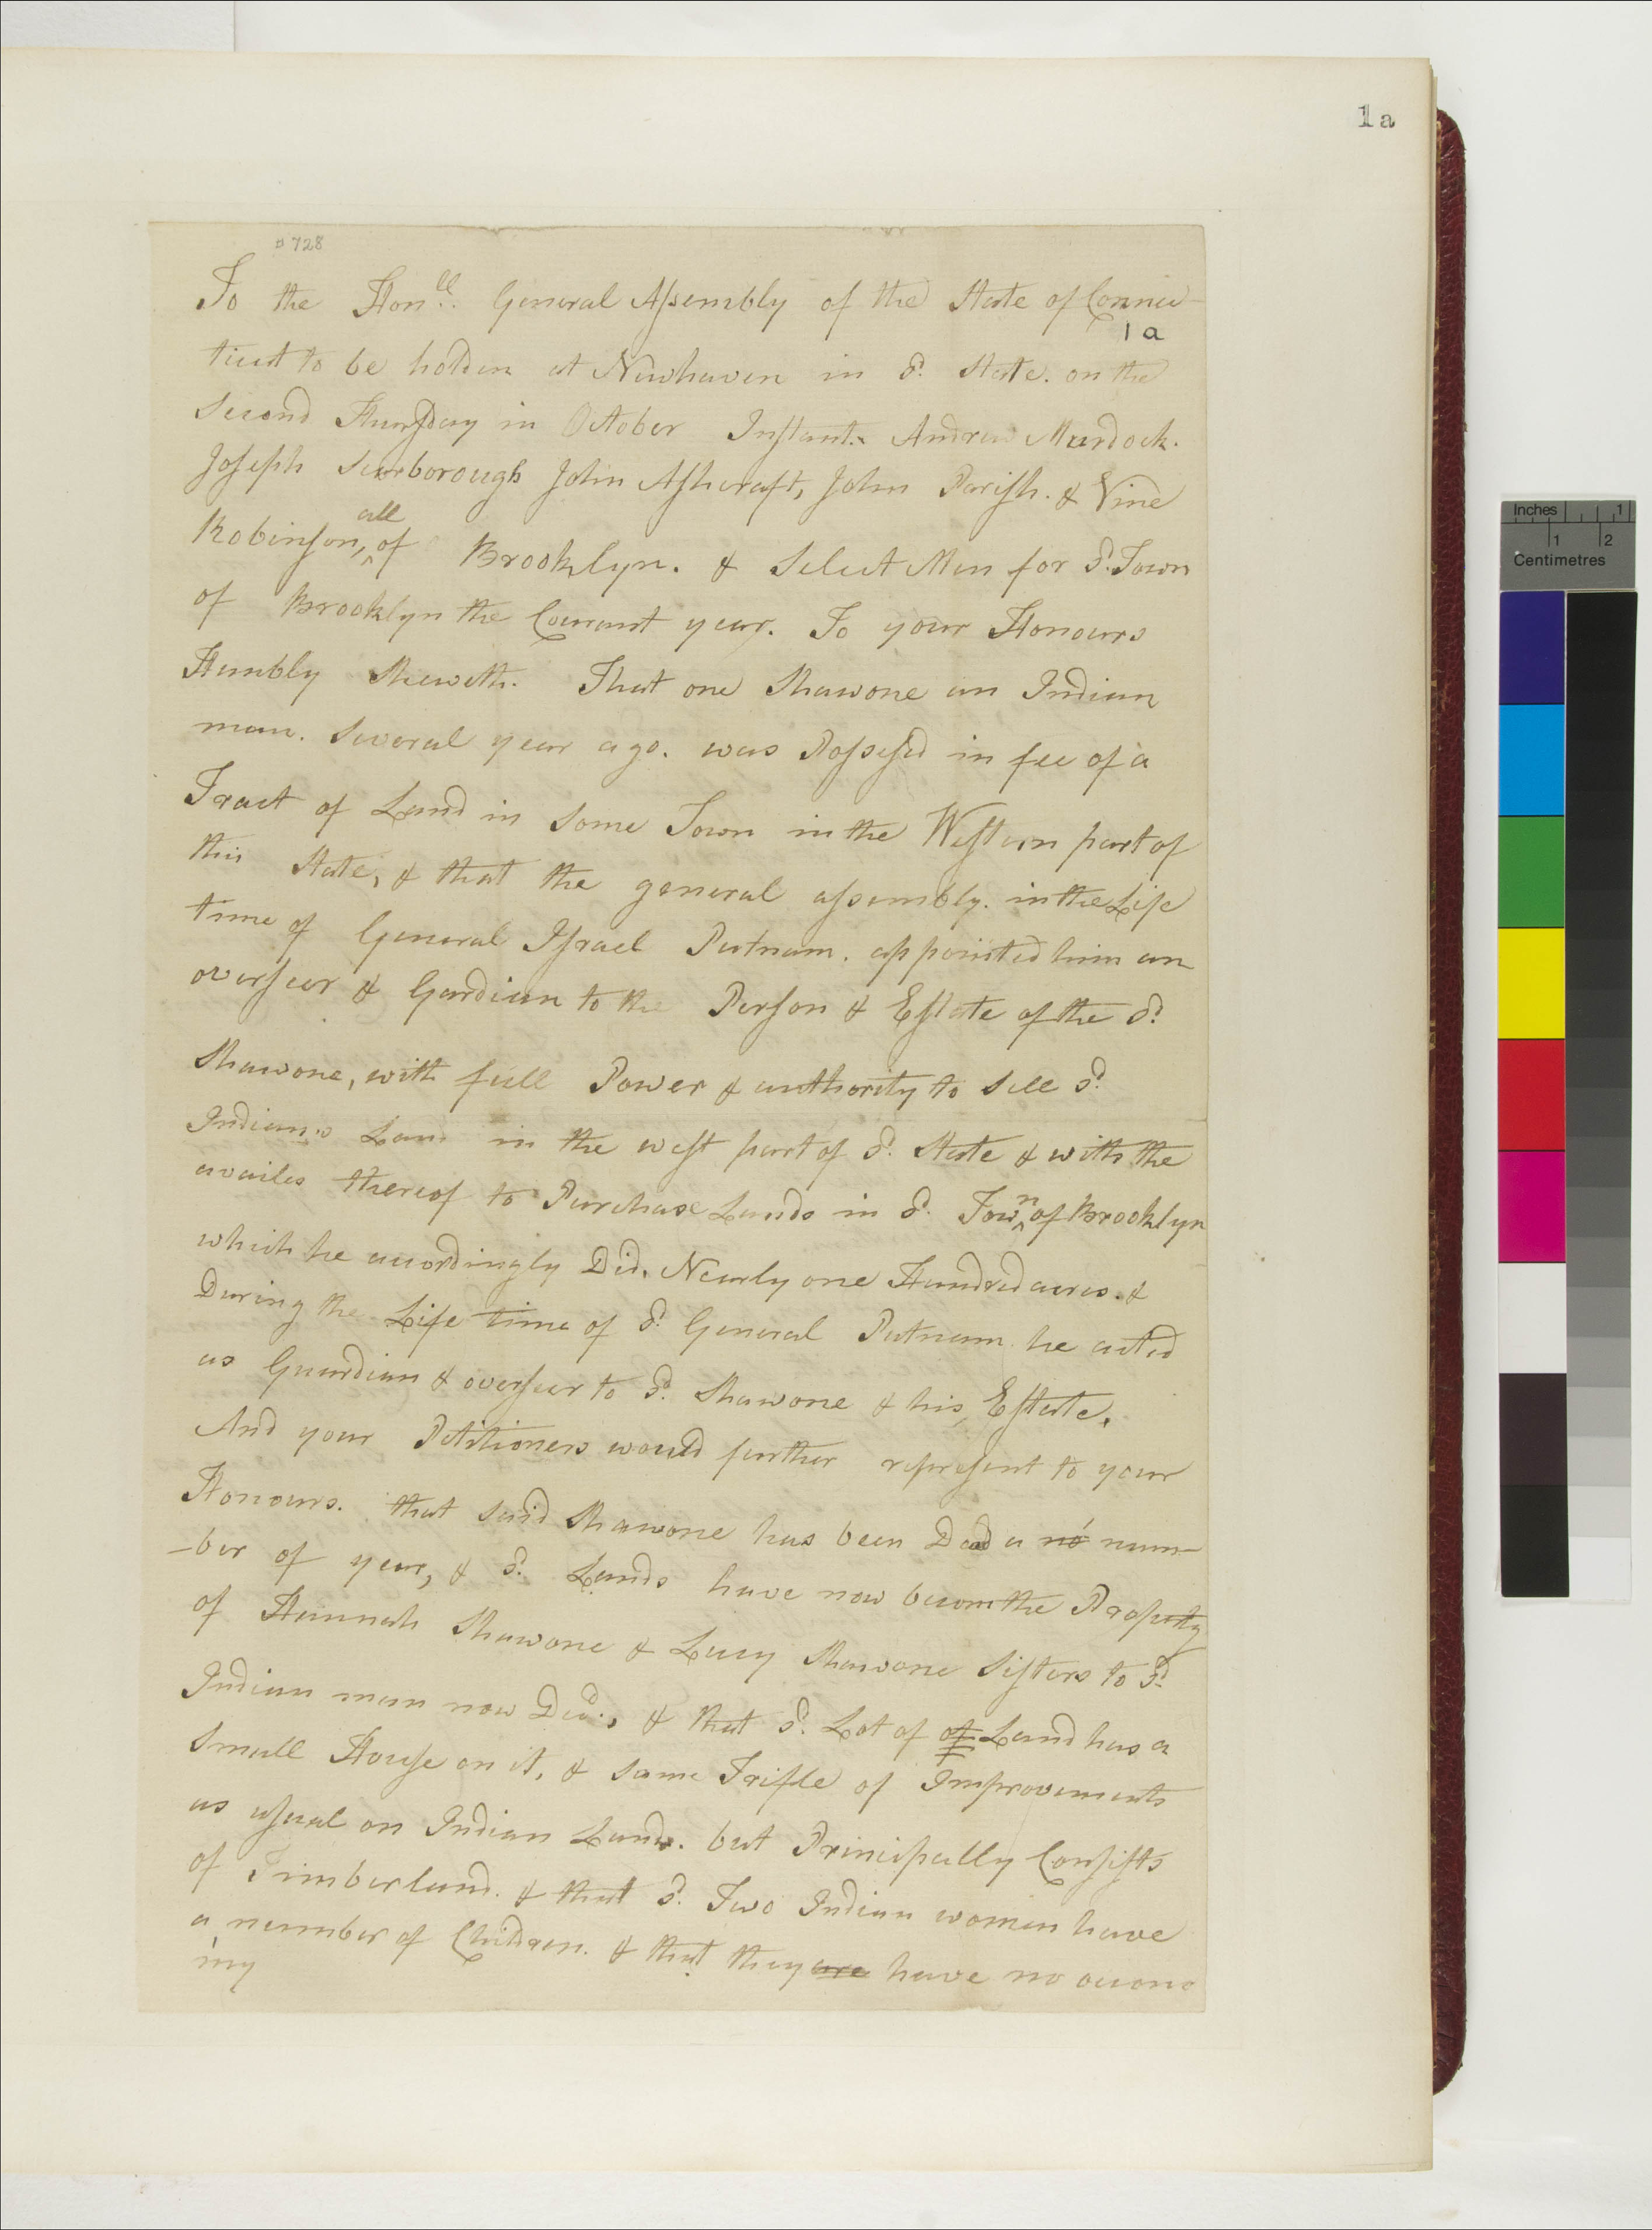 1a
# 728
To the Honll. General Assembly of the State of Connec-
1a
ticut to be holden at Newhaven in sd. State. on the
Second Thursday in October Instant. Andrew Murdock.
Joseph Scarborough John Ashcraft, John Parish. & Vine
all
Robinson, ^ of Brooklyn. & Select Men for sd. Town
of Brooklyn the Courant year. To your Honours
Humbly Sheweth. That one Shawone an Indian
man. Several year ago. was Possesd in fee of a
Tract of Land in Some Town in the Western part of
this State, & that the general assembly. in the Life
time of General Israel Putnam. appointed him an
overseer & Gardian to the Person & Estate of the sd.
Shawone, with full Power & authority to Sell sd.
Indian's Land in the west part of sd. State & with the
availes thereof to Purchase Lands in sd. Town of Brooklyn
which he accordingly Did, Nearly one Hundred acres. &
During the Life time of sd. General Putnam he acted
as Guardian & overseer to sd. Shawone & his Estate,
And your Petitioners would further represent to your
Honours. that said Shawone has been Dead a no num-
-ber of year, & sd. Lands have now becom the Property
of Hannah Shawone & Lucy Shawone Sisters to sd.
Indian man now Decd., & that sd. Lot of of Land has a
Small House on it, & Some Trifle of Improvements
as usual on Indian Lands. but Principally Consists
of Timberland. & that sd. Two Indian women have
a number of Children. & that they are have no occono
my
Inches 1
1 2
Centimetres